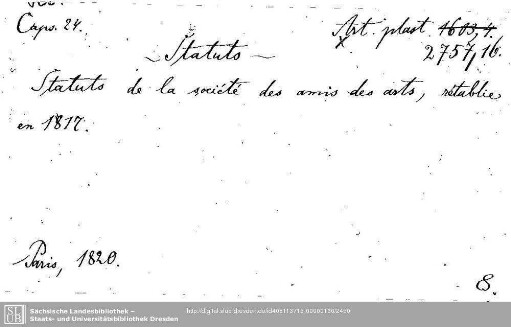 Caps. 24.
Art. plast. 1603,4.
2757,16.
Statuts
Statuts de la société des amis des arts, rétablie
en 1817.
Paris, 1820.
8.
Sächsische Landesbibliothek –
Staats- und Universitätsbibliothek Dresden